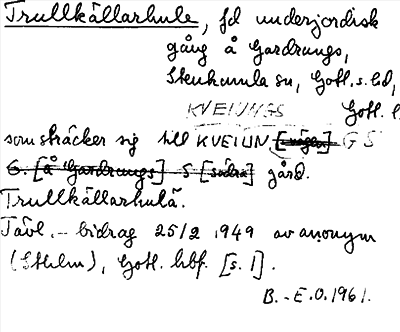 Trullkällarhule, fd underjordisk
gång å Gardrungs,
Stenkumla sn, Gotl. s. hd,
KVEIUNGS Gotl. l
som sträcker sig till KVEIUN [någon] G S
G. [å Gardrungs] S [södra] gård.
Trullkällarhulä.
Tävl.-bidrag 25/2 1949 av anonym
(Sthlm), Gotl. hbf. [s. 1].
B.-E.O. 1961.